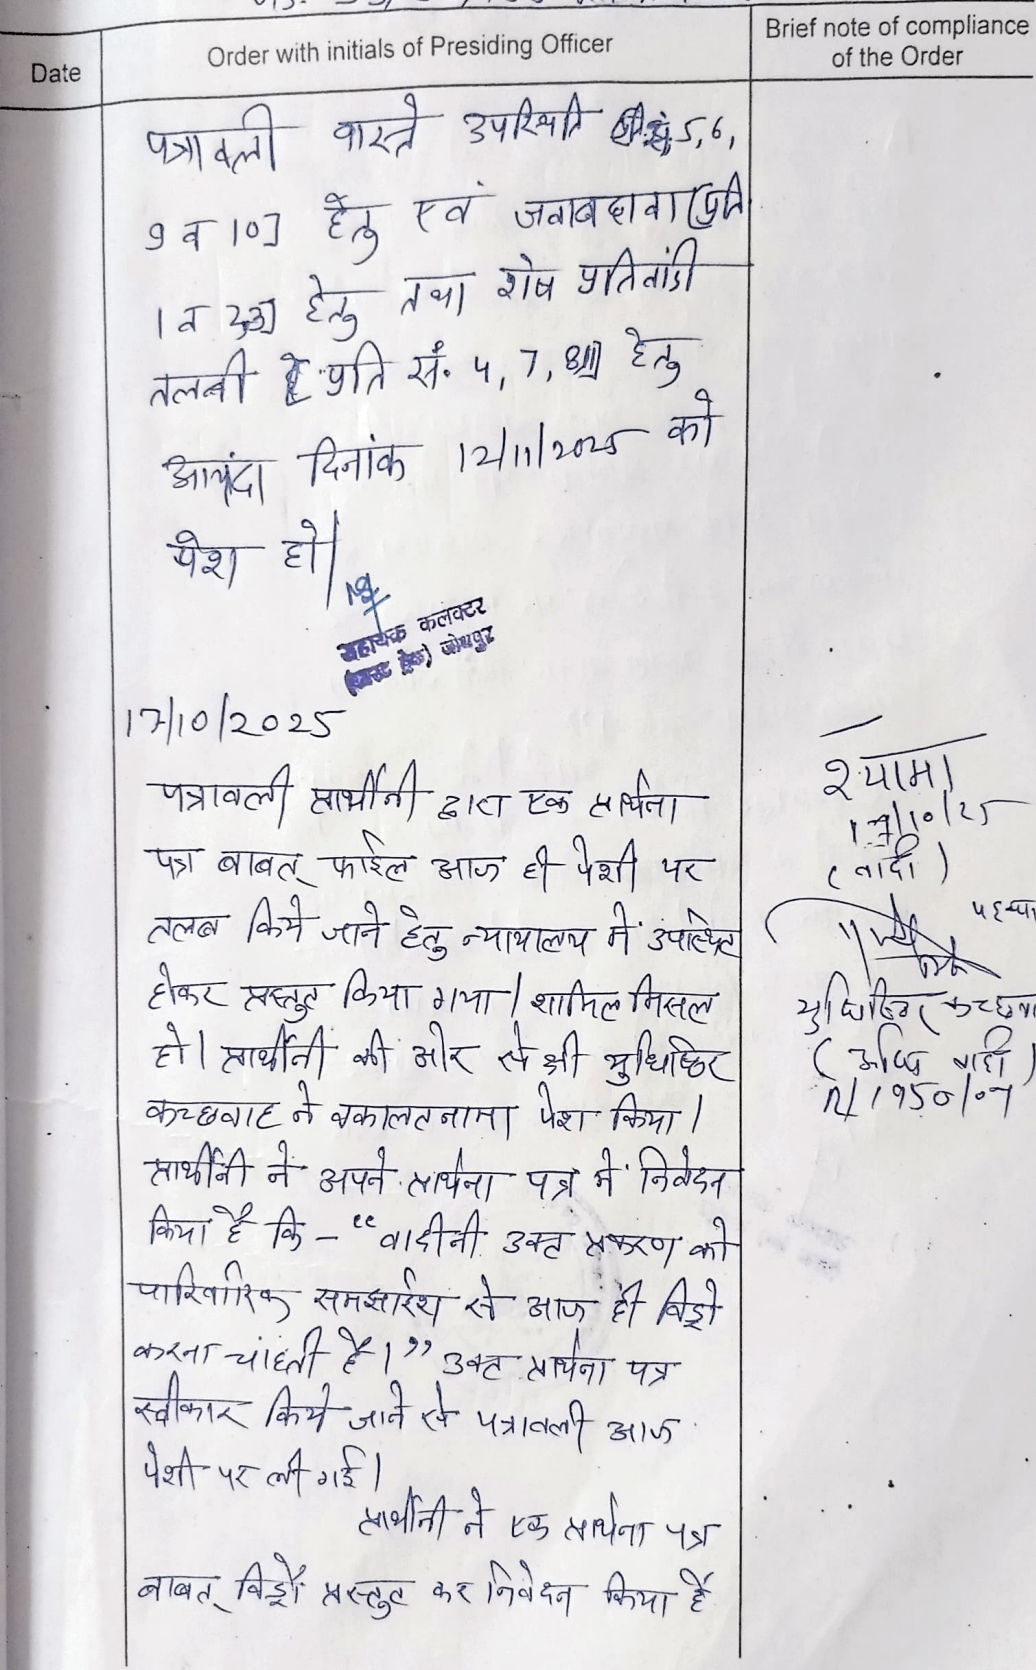 Date
Order with initials of Presiding Officer
Brief note of compliance
of the Order
पत्रावली वास्ते उपस्थिति 5,6,
9 व 10] हेतु एवं जवाबदावा (प्रति
1 व 2,3] हेतु तथा शेष प्रतिवादी
तलबी प्रति सं. 4, 7, 8,11] हेतु
आयंदा दिनांक 12/11/2025 को
पेश हो।
सहायक कलक्टर
(फास्ट ट्रेक) जोधपुर
17/10/2025
पत्रावली प्रार्थीनी द्वारा एक प्रार्थना
पत्र बाबत् फाईल आज ही पेशी पर
तलब किये जाने हेतु न्यायालय में उपस्थित
होकर प्रस्तुत किया गया। शामिल मिसल
हो। प्रार्थीनी की ओर से श्री युधिष्ठिर
कच्छवाह ने वकालतनामा पेश किया।
प्रार्थीनी ने अपने प्रार्थना पत्र में निवेदन
किया है कि - "वादीनी उक्त प्रकरण को
पारिवारिक समझाईश से आज ही विड्रो
करना चाहती है।" उक्त प्रार्थना पत्र
स्वीकार किये जाने से पत्रावली आज
पेशी पर ली गई।
प्रार्थीनी ने एक प्रार्थना पत्र
बाबत् विड्रो प्रस्तुत कर निवेदन किया है
श्यामा
17/10/25
(वादी)
युधिष्ठिर कच्छवा
(अधि वादी)
R/1950/07